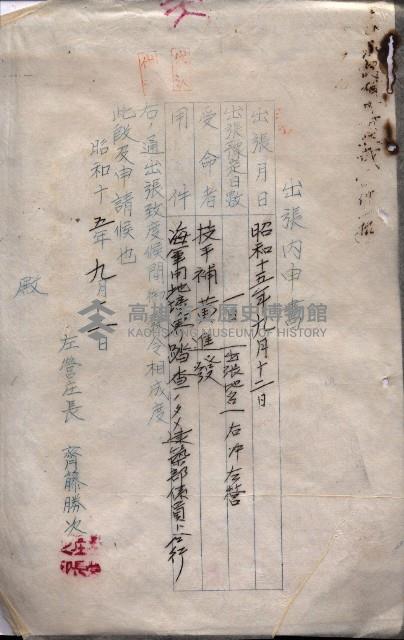 出張內申書
出張月日 昭和十五年九月十二日
出張豫定日數 一 出張地名 右冲左營
受命者 技手補黃進發
用件 海軍用地境界踏查ノタメ建築部係員ト仝行
右ノ通出張致度候間御命令相成度
此段及申請候也
昭和十五年九月十一日
左營庄長 齊藤勝次
殿
高雄市立歷史博物館
KAOHSIUNG MUSEUM OF HISTORY